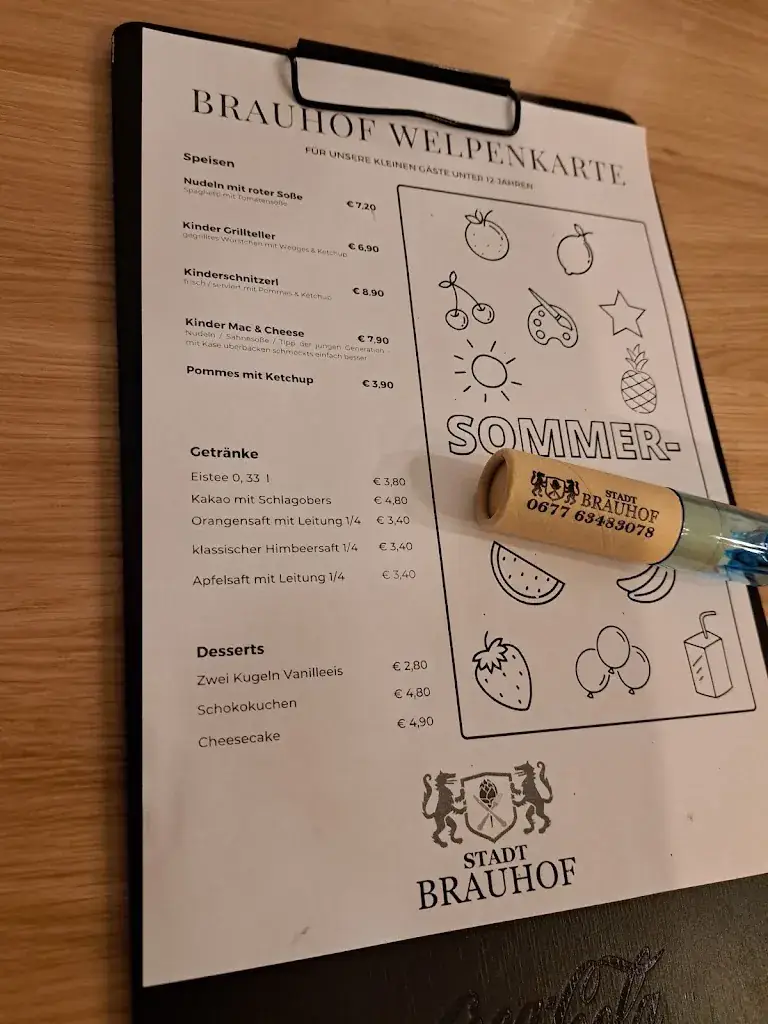 BRAUHOF WELPENKARTE
FÜR UNSERE KLEINEN GÄSTE UNTER 12 JAHREN
Speisen
Nudeln mit roter Soße € 7,20
Spaghetti mit Tomatensoße
Kinder Grillteller € 6,90
gegrilltes Würstchen mit Wedges & Ketchup
Kinderschnitzerl € 8,90
frisch / serviert mit Pommes & Ketchup
Kinder Mac & Cheese € 7,90
Nudeln / Sahnesoße / Tipp der jungen Generation -
mit Käse überbacken schmeckts einfach besser
Pommes mit Ketchup € 3,90
Getränke
Eistee 0, 33 l € 3,80
Kakao mit Schlagobers € 4,80
Orangensaft mit Leitung 1/4 € 3,40
klassischer Himbeersaft 1/4 € 3,40
Apfelsaft mit Leitung 1/4 € 3,40
Desserts
Zwei Kugeln Vanilleeis € 2,80
Schokokuchen € 4,80
Cheesecake € 4,90
SOMMER-
STADT
BRAUHOF
0677 63483078
STADT
BRAUHOF
Coca-Cola